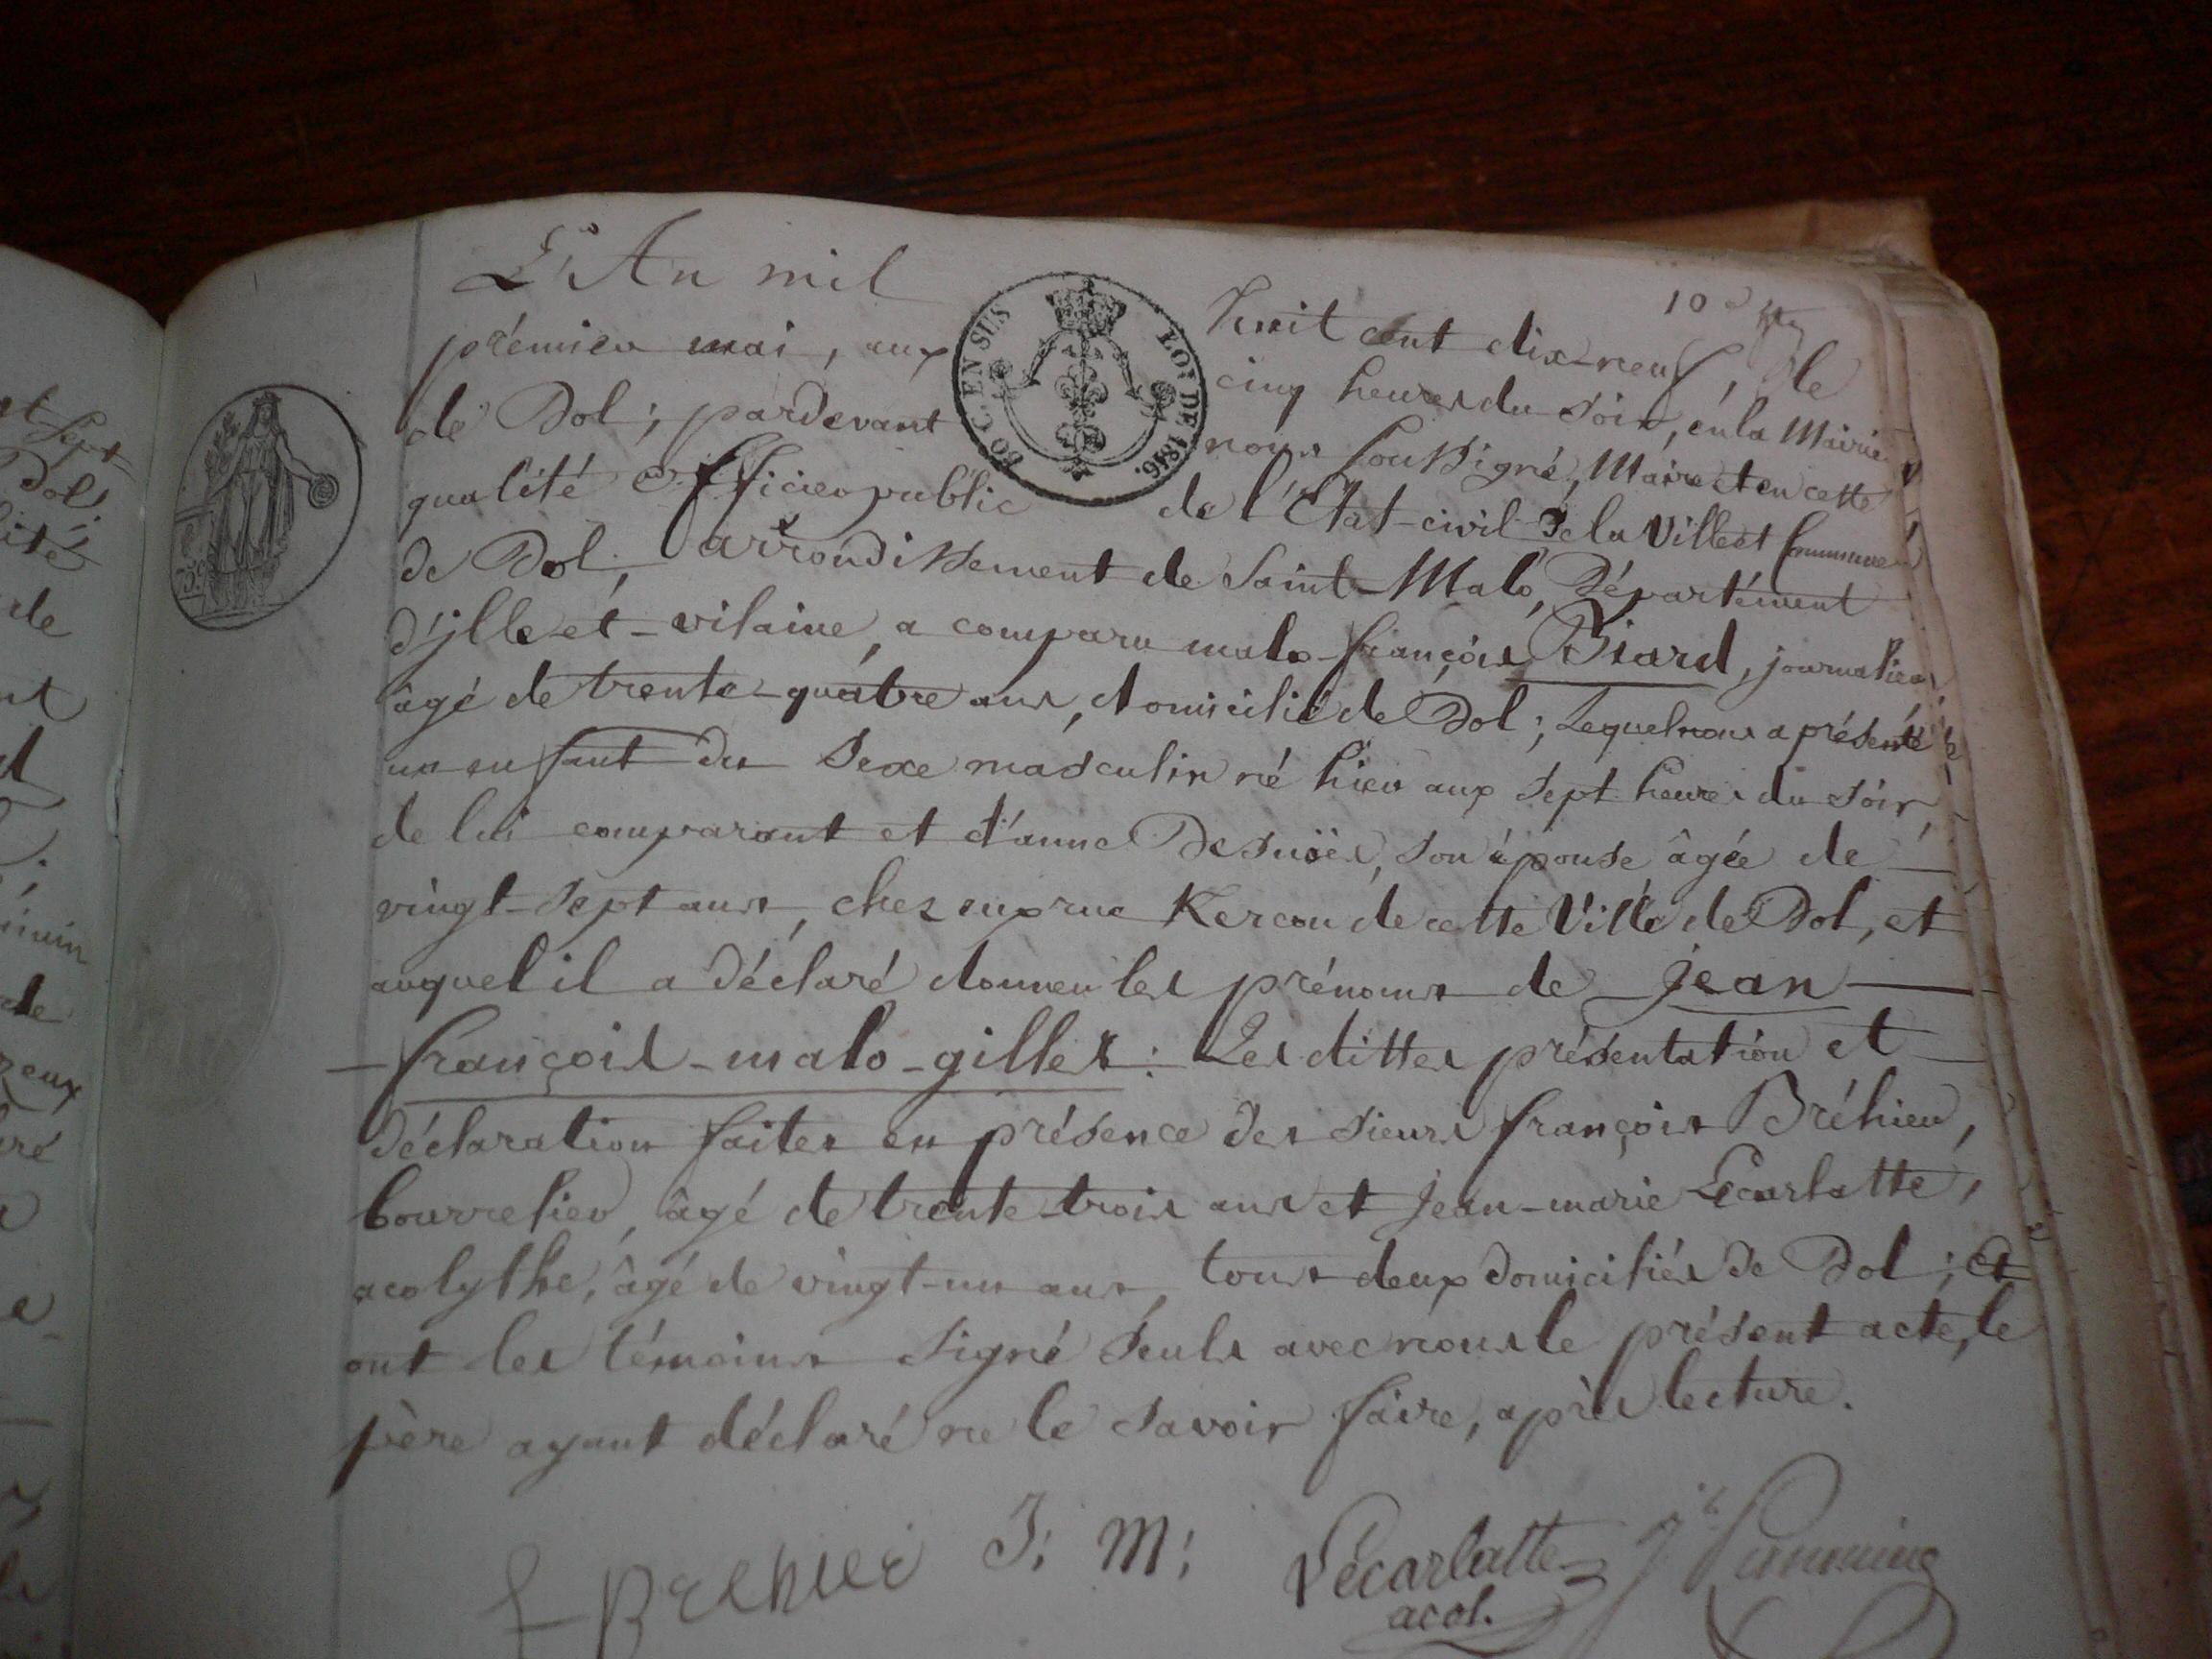 10
L'An mil huit cent dix-neuf, le
prémier mai, aux cinq heures du soir, en la Mairie
de Dol; pardevant nous soussigné, Maire et en cette
qualité officier public de l'Etat-civil de la Ville et Commune
de Dol, arrondissement de Saint-Malo, Département
d'jlle-et-vilaine, a comparu malo-françois Biard, journalier,
âgé de trente-quatre ans, domicilié de Dol; Lequel nous a présenté
un enfant du sexe masculin né hier aux sept heures du soir,
de lui comparant et d'anne Desnoës, son épouse âgée de
vingt-sept ans, chez eux rue Kercou de cette Ville de Dol, et
auquel il a déclaré donner les prénoms de jean
françois-malo-gilles: Les dittes présentation et
déclaration faites en présence des sieurs françois Bréhier,
bourrelier, âgé de trente-trois ans et jean-marie Lécarlatte,
acolythe, âgé de vingt-un ans, tous deux domiciliés de Dol; Et
ont les témoins signé seuls avec nous le présent acte, le
père ayant déclaré ne le savoir faire, après lecture.
f Brehier J: M: Lécarlatte
acol.
LOI DE 1816.
EN SUS
75c